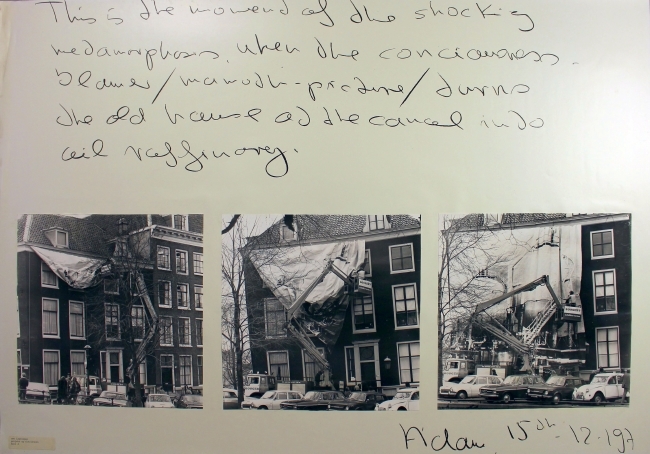 This is the moment of the shocking
metamorphosis, when the conciousness.
blower/mamoth-picture/turns
the old house at the canal into
oil raffinory.
A'dam, 15th - 12. 197